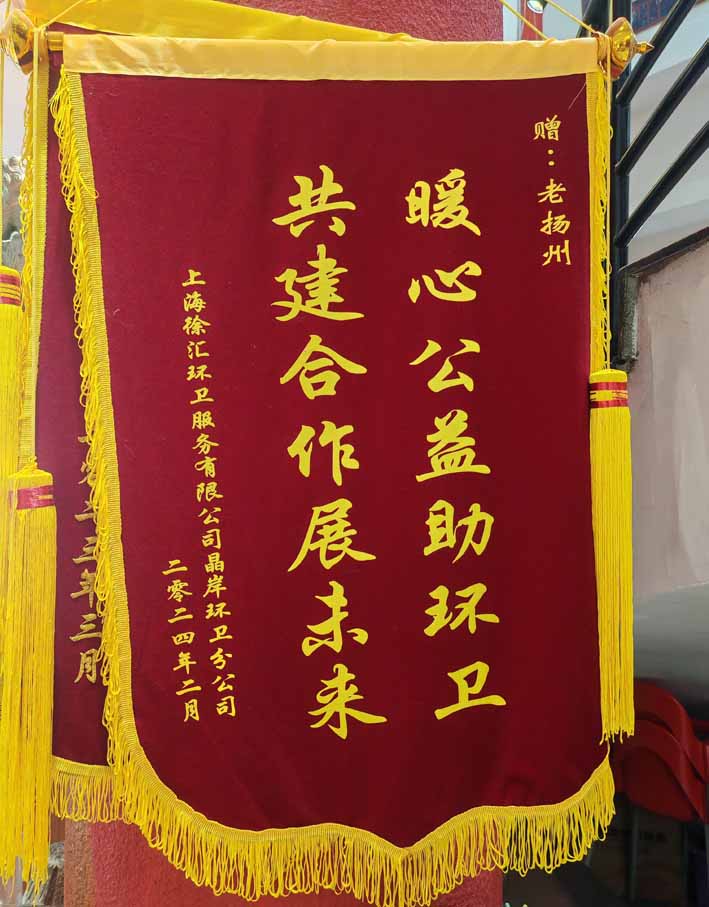 赠：老扬州
暖心公益助环卫
共建合作展未来
上海徐汇环卫服务有限公司晶岸环卫分公司
二零二四年二月
二三年三月